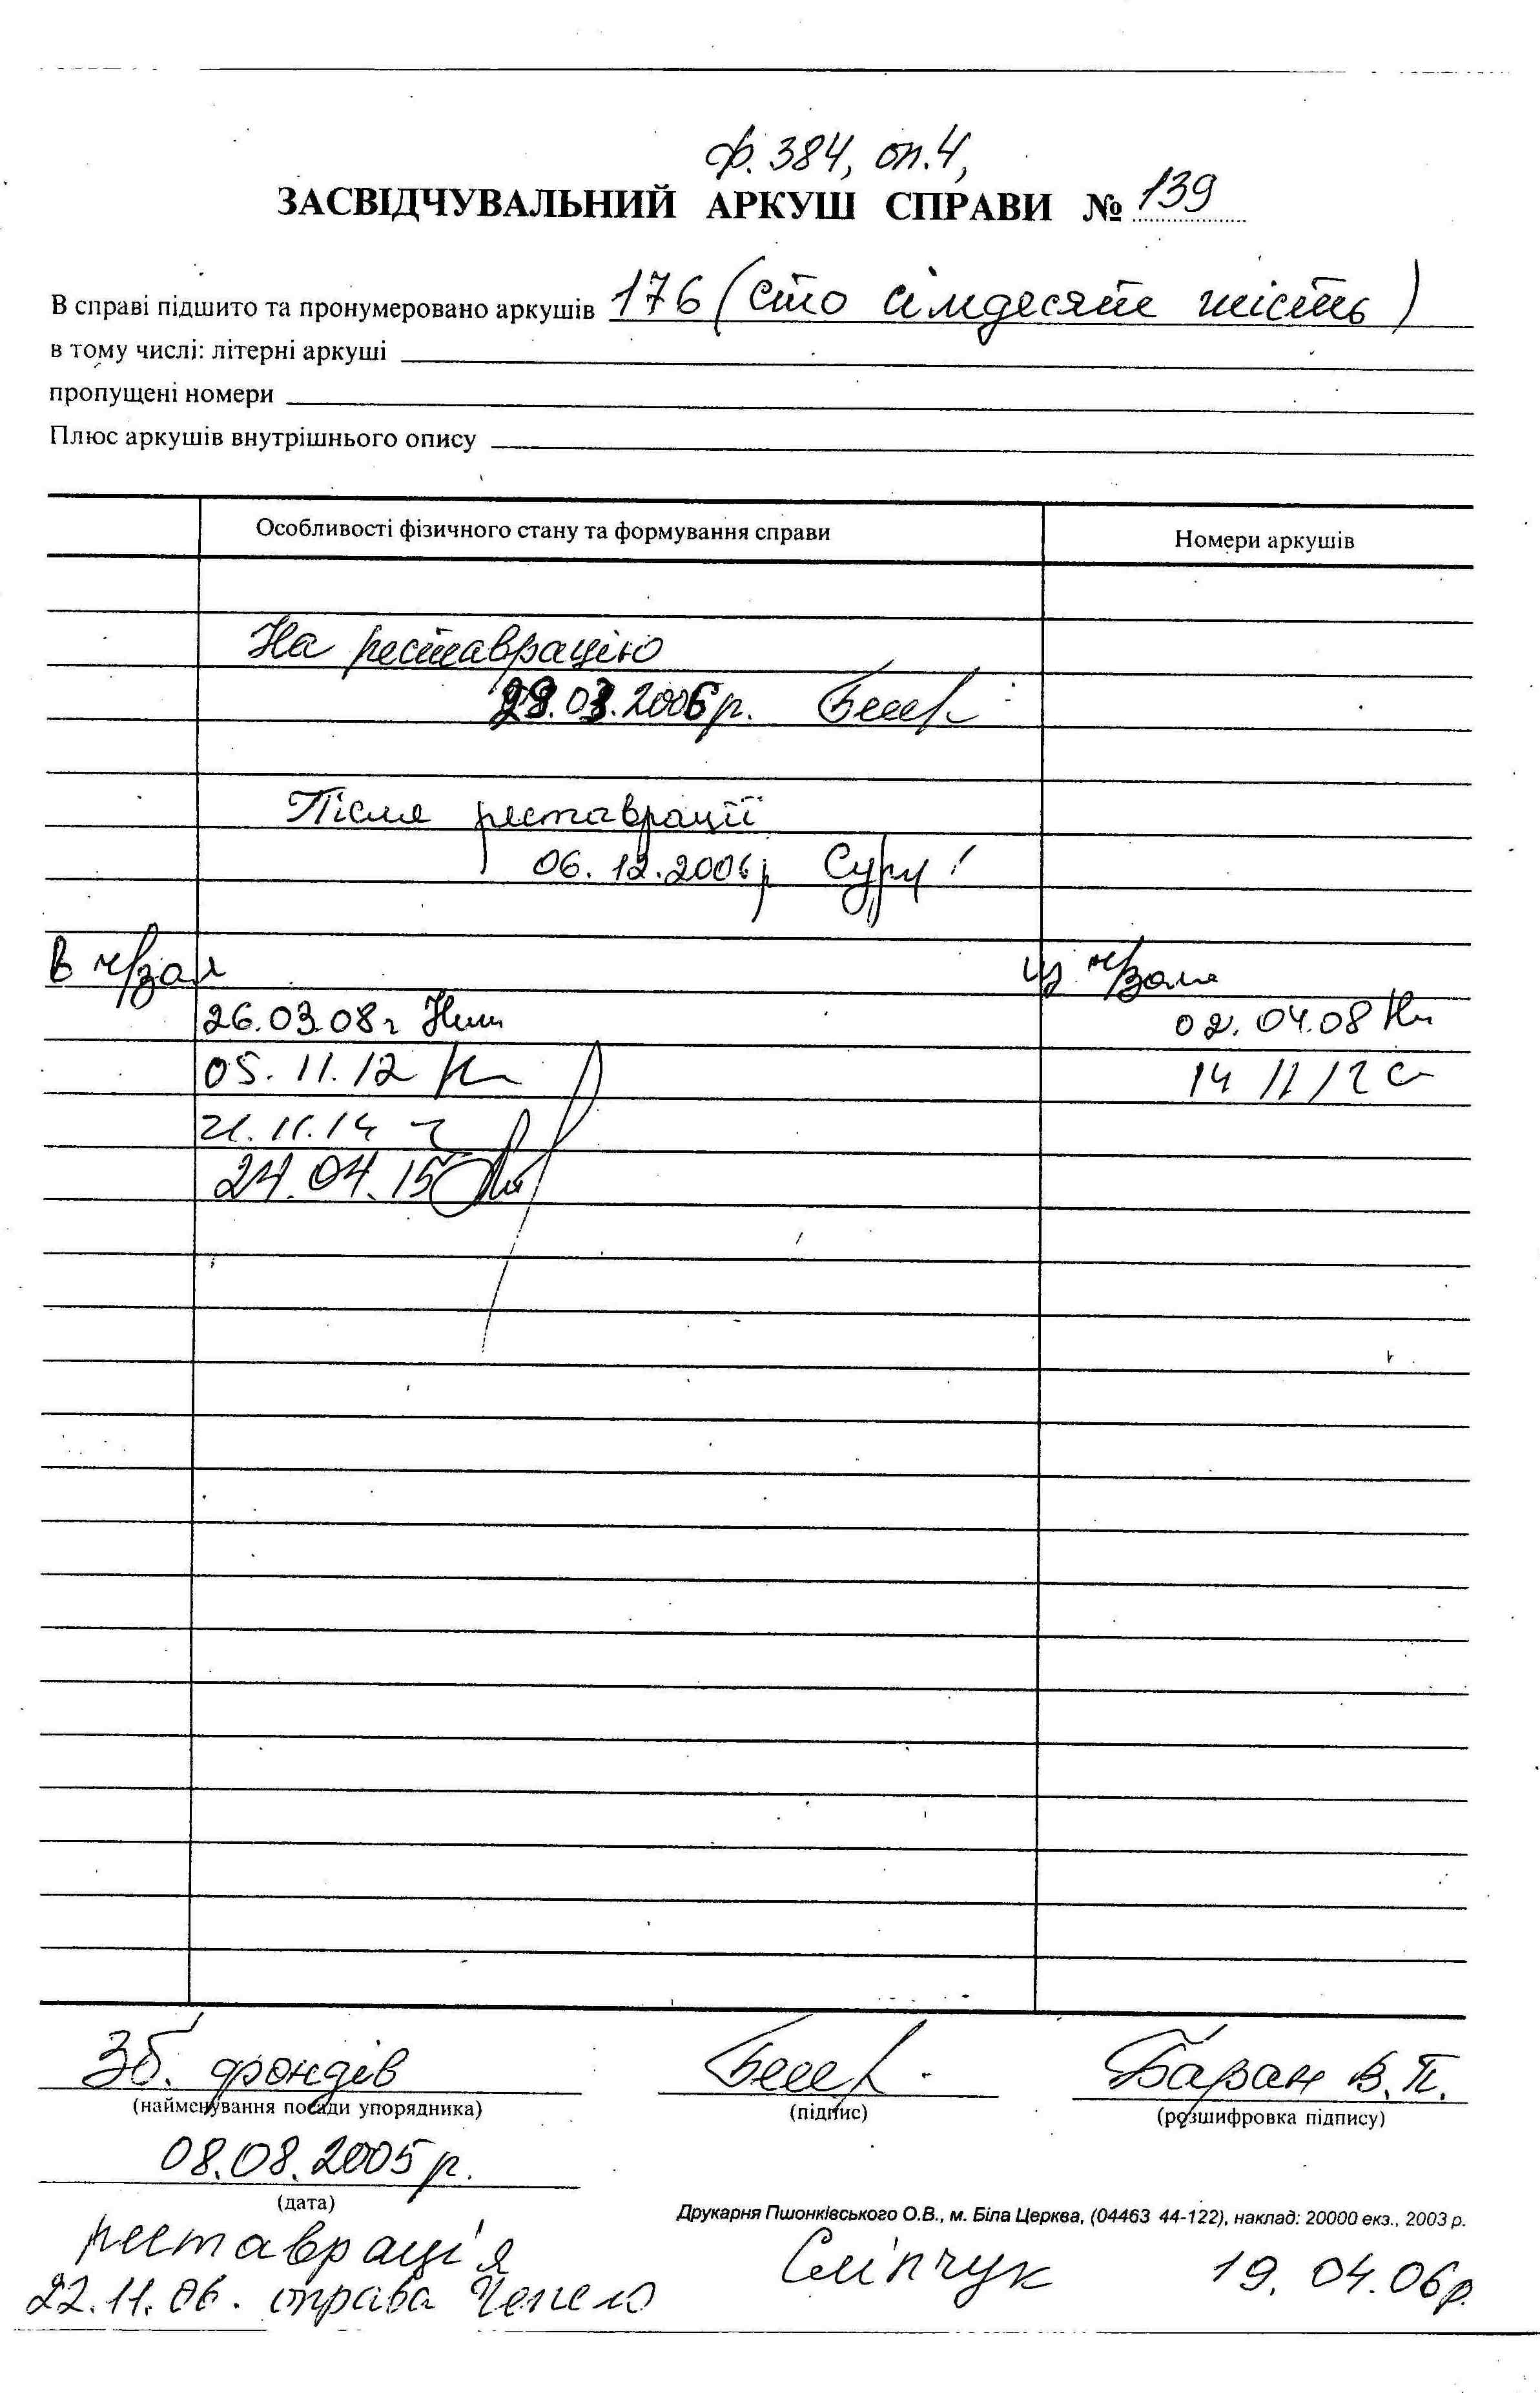 ф. 384, оп. 4,
ЗАСВІДЧУВАЛЬНИЙ АРКУШ СПРАВИ № 139
В справі підшито та пронумеровано аркушів 176 (сто сімдесят шість)
в тому числі: літерні аркуші
пропущені номери
Плюс аркушів внутрішнього опису
Особливості фізичного стану та формування справи Номери аркушів
На реставрацію
.2006 р.
Після реставрації
06.12.2006 р
В ч/зал из ч/зала
26.03.08 г 02.04.08
05.11.12 14 11 12
21.11.14
24.04.15
Зб. фондів Баран В.П.
(найменування посади упорядника) (підпис) (розшифровка підпису)
08.08.2005 р.
(дата)
Друкарня Пшонківського О.В., м. Біла Церква, (04463 44-122), наклад: 20000 екз., 2003 р.
реставрація Сліпчук 19.04.06 р.
22.11.06. справа